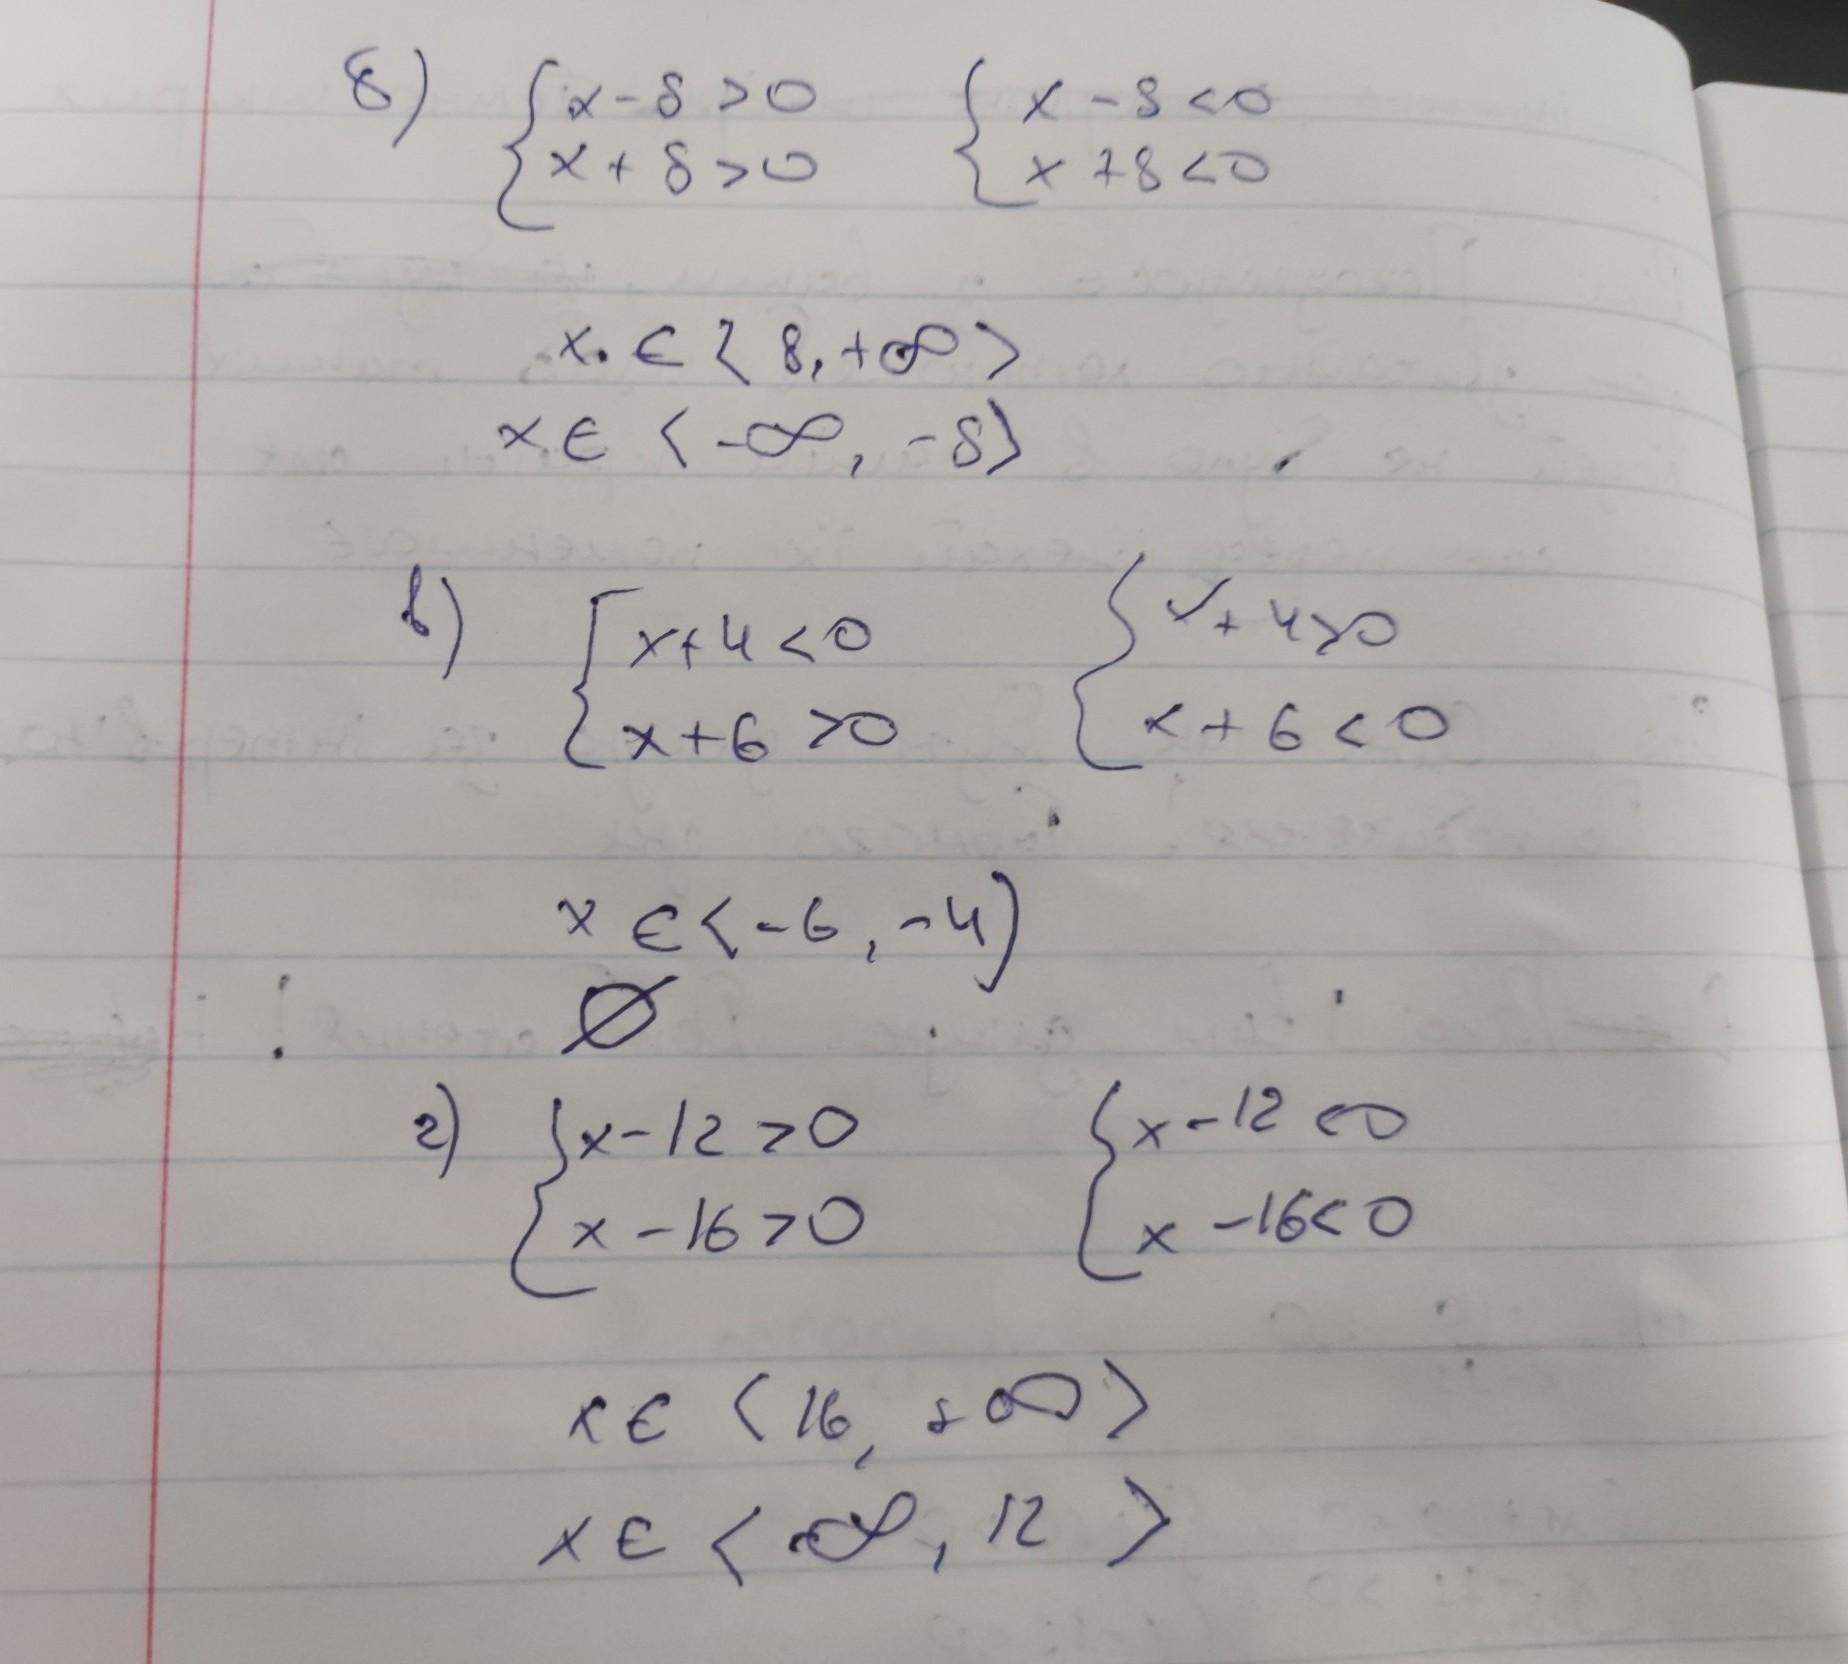 б) { x-8>0 { x-8<0
x+8>0 x+8<0
x ∈ ⟨8, +∞⟩
x ∈ ⟨-∞, -8⟩
в) { x+4<0 { x+4>0
x+6>0 x+6<0
x ∈ ⟨-6, -4)
∅
г) { x-12>0 { x-12<0
x-16>0 x-16<0
x ∈ ⟨16, +∞⟩
x ∈ ⟨-∞, 12⟩